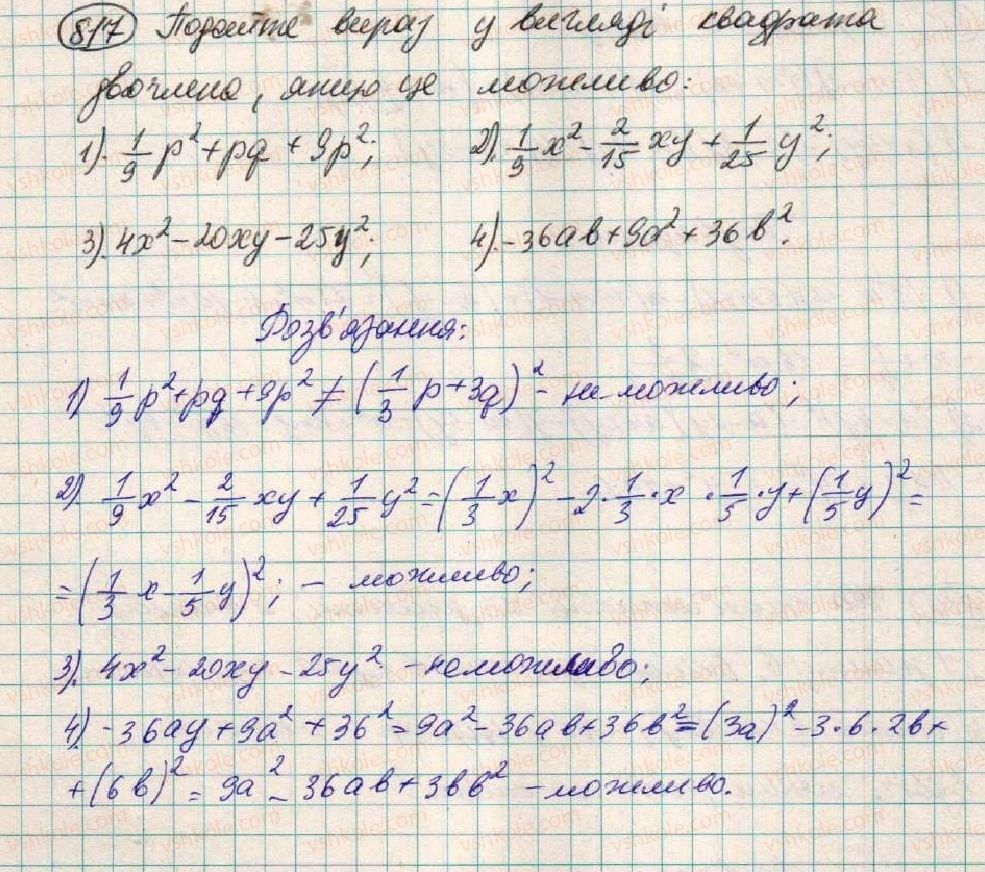 817 Подайте вираз у вигляді квадрата
двочлена, якщо це можливо:
1). 1/9 p² + pq + 9p²; 2). 1/9 x² - 2/15 xy + 1/25 y²;
3). 4x² - 20xy - 25y²; 4). -36ab + 9a² + 36b².
Розв'язання:
1) 1/9 p² + pq + 9p² ≠ (1/3 p + 3q)² - не можливо;
2) 1/9 x² - 2/15 xy + 1/25 y² = (1/3 x)² - 2 · 1/3 · x · 1/5 · y + (1/5 y)² =
= (1/3 x - 1/5 y)²; - можливо;
3). 4x² - 20xy - 25y² - неможливо;
4) -36ay + 9a² + 36² = 9a² - 36ab + 36b² = (3a)² - 3 · 6 · 2b +
+ (6b)² = 9a² - 36ab + 3bb² - можливо.